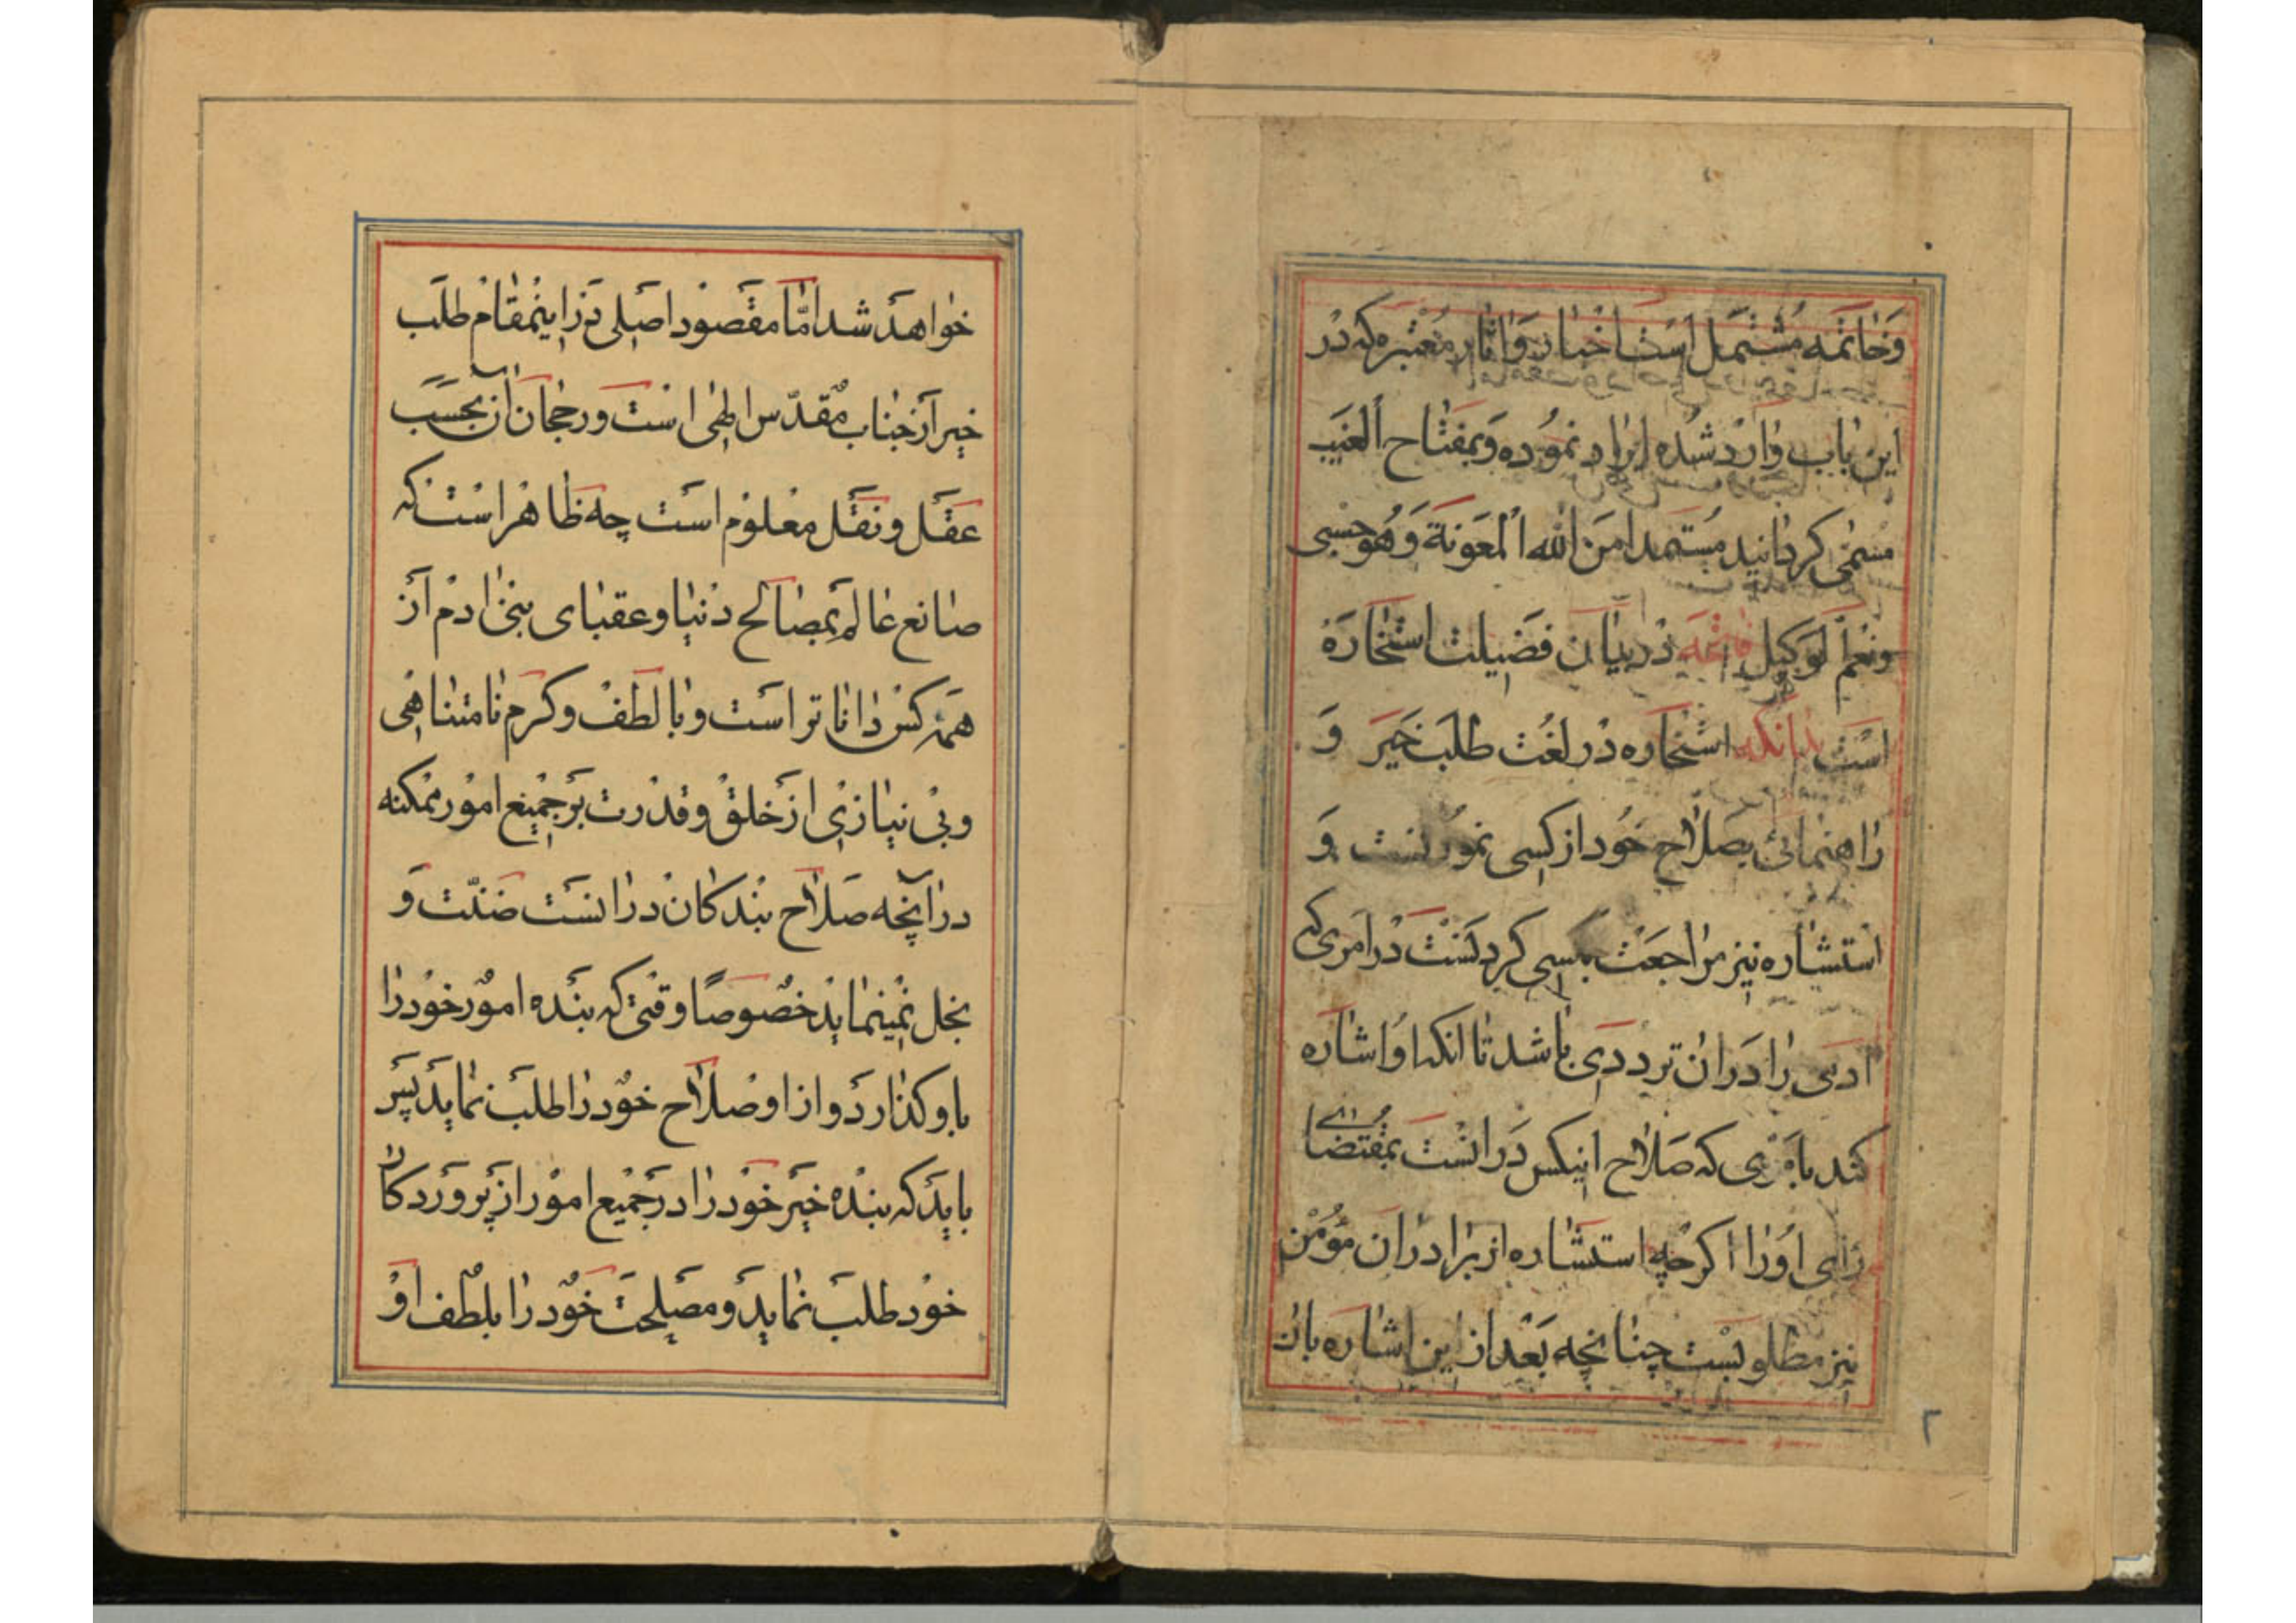 وَخاتمه مُشتمل است اخبار و اثار مُعتبره که در
این باب وارد شده ایراد نموده و بمفتاح الغیب
مسمی کردانید مستمدا من الله المعونة وَهُوَ حسبی
ونعم الوکیل فاتحه در بیان فضیلت استخاره
است بدانکه استخاره در لغت طلب خیر وَ
راهنمائی بصلاح خود از کسی نمودنست وَ
استشاره نیز مراجعت بکسی کردنست در امری که
ادمی را در ان ترددی باشد تا انکه او اشاره
کند بامری که صلاح اینکس در انست بمقتضای
رای او را اکرچه استشاره از برادران مؤمن
نیز مطلوبست چنانچه بعد از این اشاره بان
خواهد شد امّا مقصود اصلی در اینمقام طلب
خیر از جناب مقدّس الهی است و رجحان آن بحسب
عقل و نقل معلوم است چه ظاهر است که
صانع عالم بمصالح دنیا و عقبای بنی ادم از
همه کس دانا تر است و با لطف و کرم نامتناهی
و بی نیازی از خلق و قدرت بر جمیع امور ممکنه
در آنچه صلاح بندکان در انست ضنّت وَ
بخل نمینماید خصوصًا وقتی که بنده امور خود را
باو کذارد و از او صلاح خود را طلب نماید پس
باید که بنده خیر خود را در جمیع امور از پروردکار
خود طلب نماید و مصلحت خود را بلطف او
٢